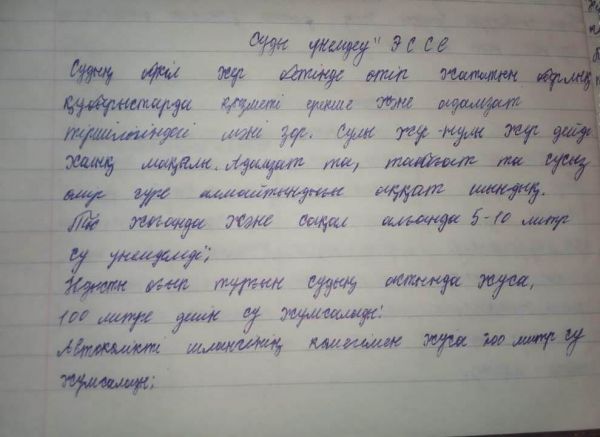 Суды үнемдеу" ЭССЕ
Судың бүкіл жер бетінде өтіп жататын барлық
құбылыстарда қызметі ерекше және адамзат
тіршілігіндегі мәні зор. Сулы жер-нулы жер дейді
халық мақалы. Адамзат та, табиғат та сусыз
өмір сүре алмайтындығы ақиқат шындық.
Тіс жуғанда және сақал алғанда 5-10 литр
су үнемделеді;
Ыдысты ағып тұрған судың астында жуса,
100 литрге дейін су жұмсалады!
Автокөлікті шлангінің көмегімен жуса 200 литр су
жұмсалады;